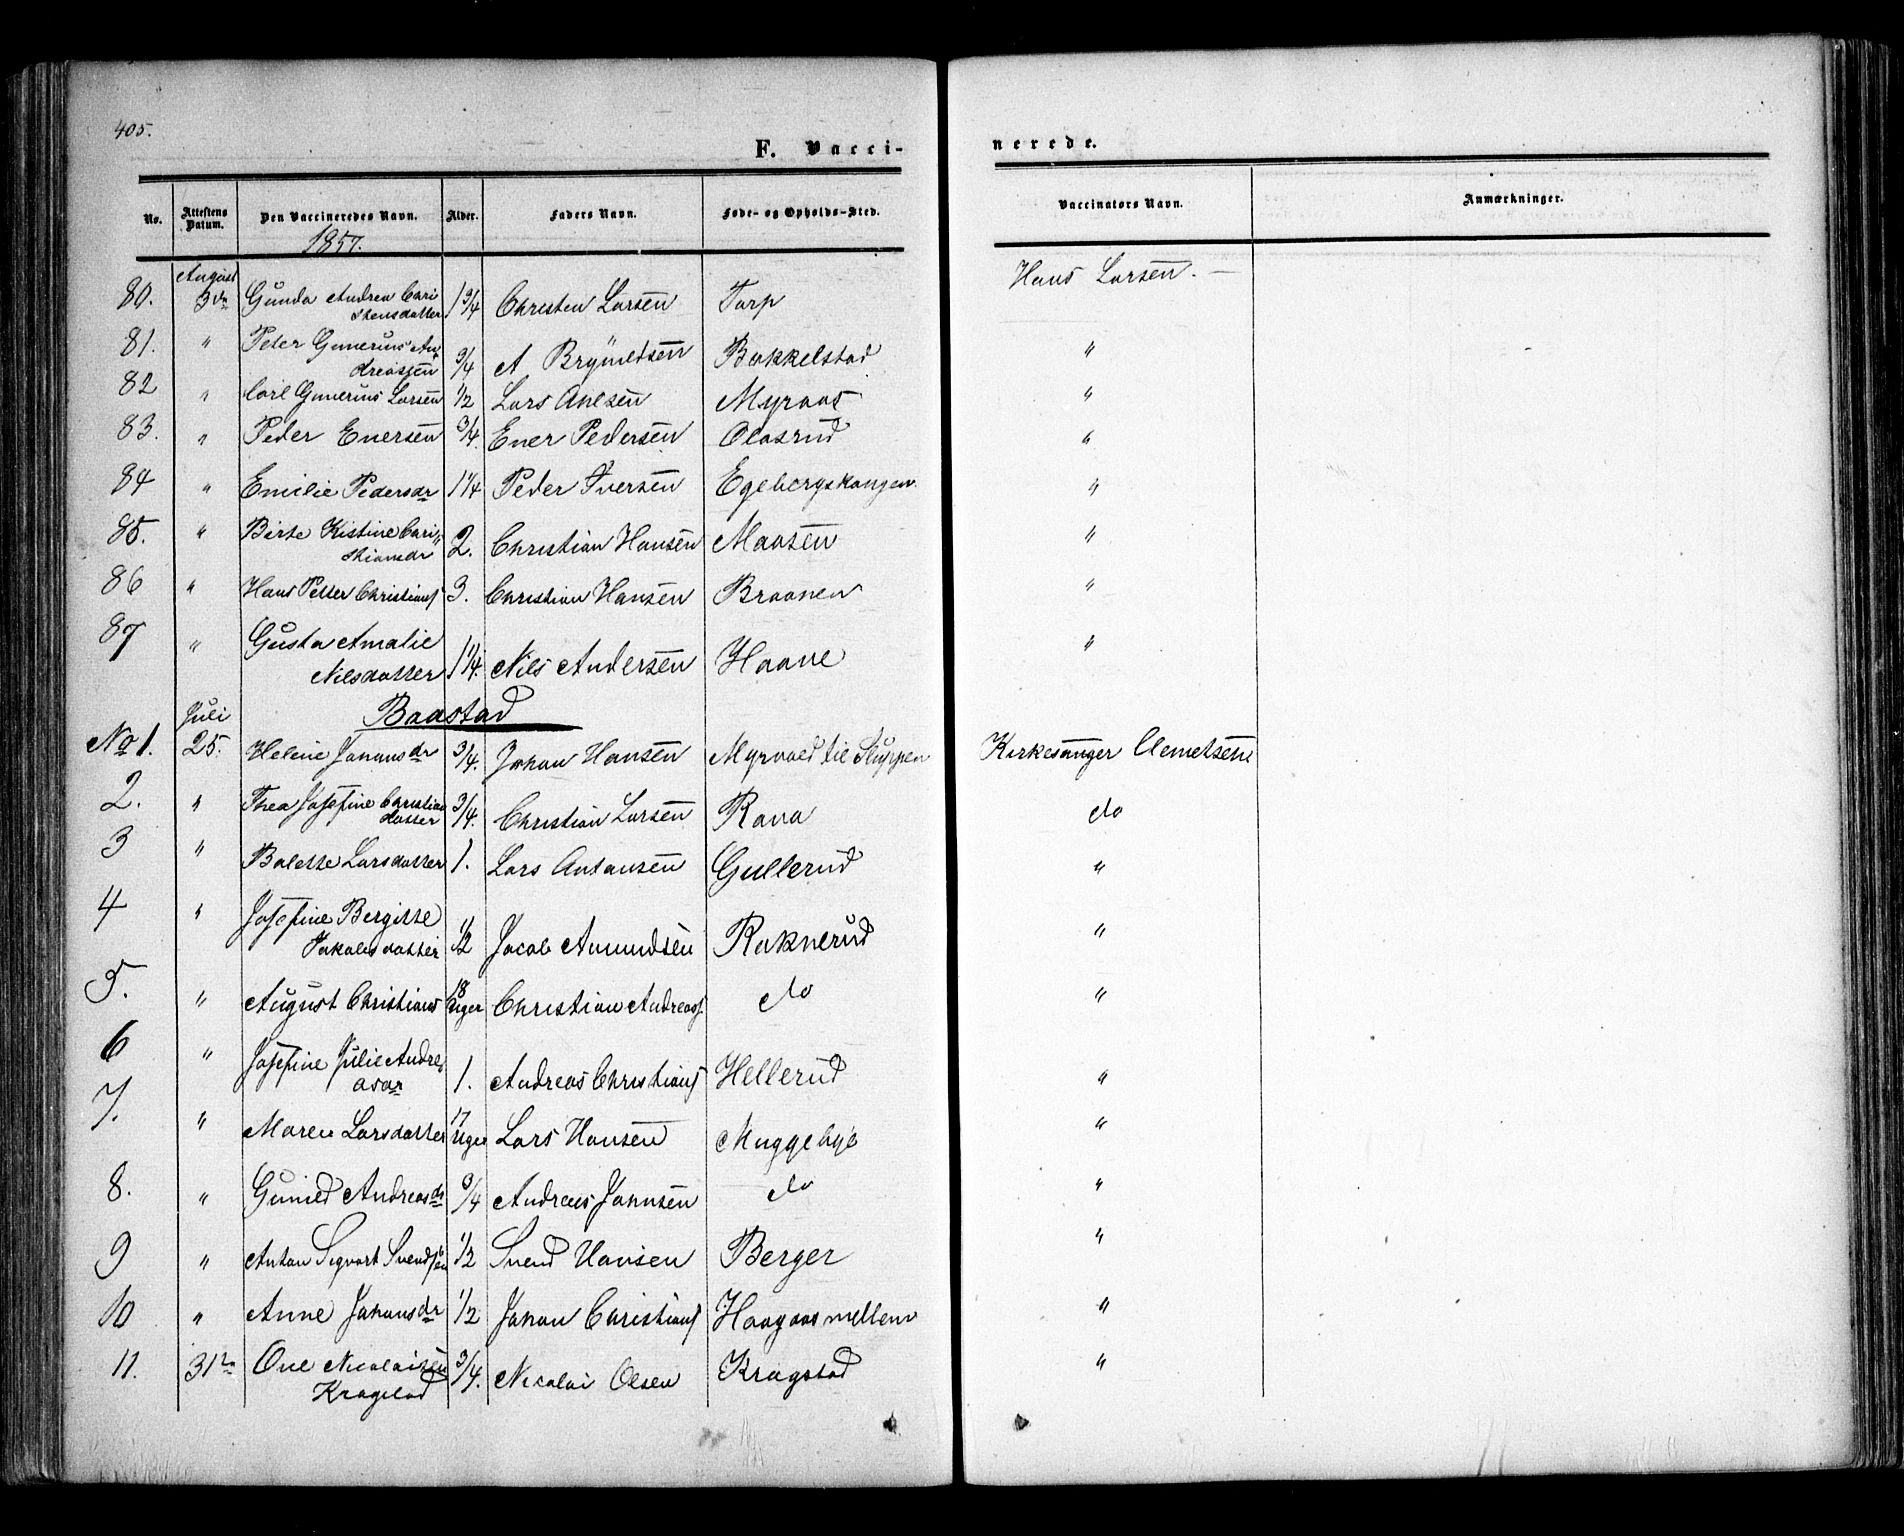 405.
F. Vacci-
nerede.
No.
Attestens Datum.
Den Vaccineredes Navn.
Alder.
Faders Navn.
Føde- og Opholds-Sted.
Vaccinators Navn.
Anmærkninger.
1857.
August
80. 3die Gunda Andrea Chri 1 3/4 Christen Larsen Torp Hans Larsen. —
stensdatter
81. " Peter Gunerius An
dreassen 3/4 A Bryneldsen Bakkelstad "
82 " Carl Gunerius Larsen 1/2 Lars Anesen Myraas "
83. " Peder Enersen 3/4. Ener Pedersen Olasrud "
84 " Emilie Pedersdr 1 1/4 Peder Iversen Egebergskongen "
85. " Birte Kistine Chri
stiansdr 2. Christian Hansen Maasen "
86 " Hans Petter Christians 3. Christian Hansen Braanen "
87 " Gusta Amalie
Nilsdatter 1 1/4. Nils Andersen Haane "
Juli Baastad
No 1. 25. Helene Johansdr 3/4. Johan Hansen Myrvold til Sluppen Kirkesanger Clemetsen
2. " Thea Josefine Christian
datter 3/4. Christian Larsen Rava do
3 " Bolette Larsdatter 1. Lars Antonsen Gullerud "
4 " Josefine Bergitte
Jakobsdatter 1/2 Jacob Amundsen Raknerud "
5. " August Christians 18 Uger Christian Andreas. do "
6 " Josefine Julie Andre
asdr 1. Andreas Christians Hellerud "
7. " Maren Larsdatter 17 Uger Lars Hansen Muggebye "
8. " Guned Andreasdr 3/4 Andreas Johnsen do "
9 " Anton Sigvart Svendsen 1/2 Svend Hansen Berger "
10 " Anne Johansdr 1/2 Johan Christians Haagaas mellem "
11. 31te Ole Nicolaisen 3/4. Nicolai Olsen Kragstad "
Kragstad